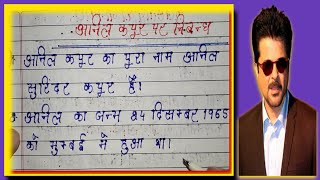 अनिल कपूर पर निबन्ध
अनिल कपूर का पूरा नाम अनिल
सुरिंदर कपूर है।
अनिल का जन्म 24 दिसम्बर 1965
को मुम्बई में हुआ था।